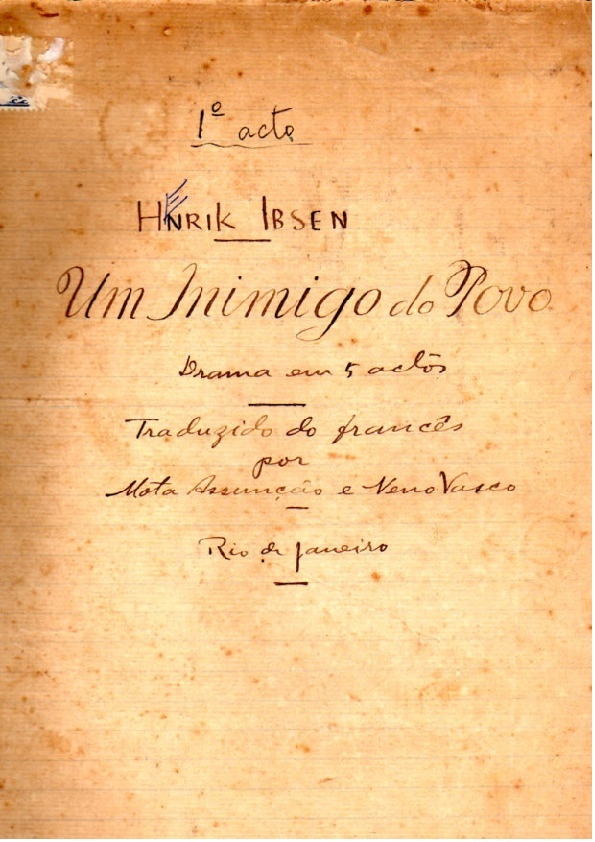 1º acto
HENRIK IBSEN
Um Inimigo do Povo
Drama em 5 actos
Traduzido do francês
por
Mota Assunção e Neno Vasco
Rio de Janeiro